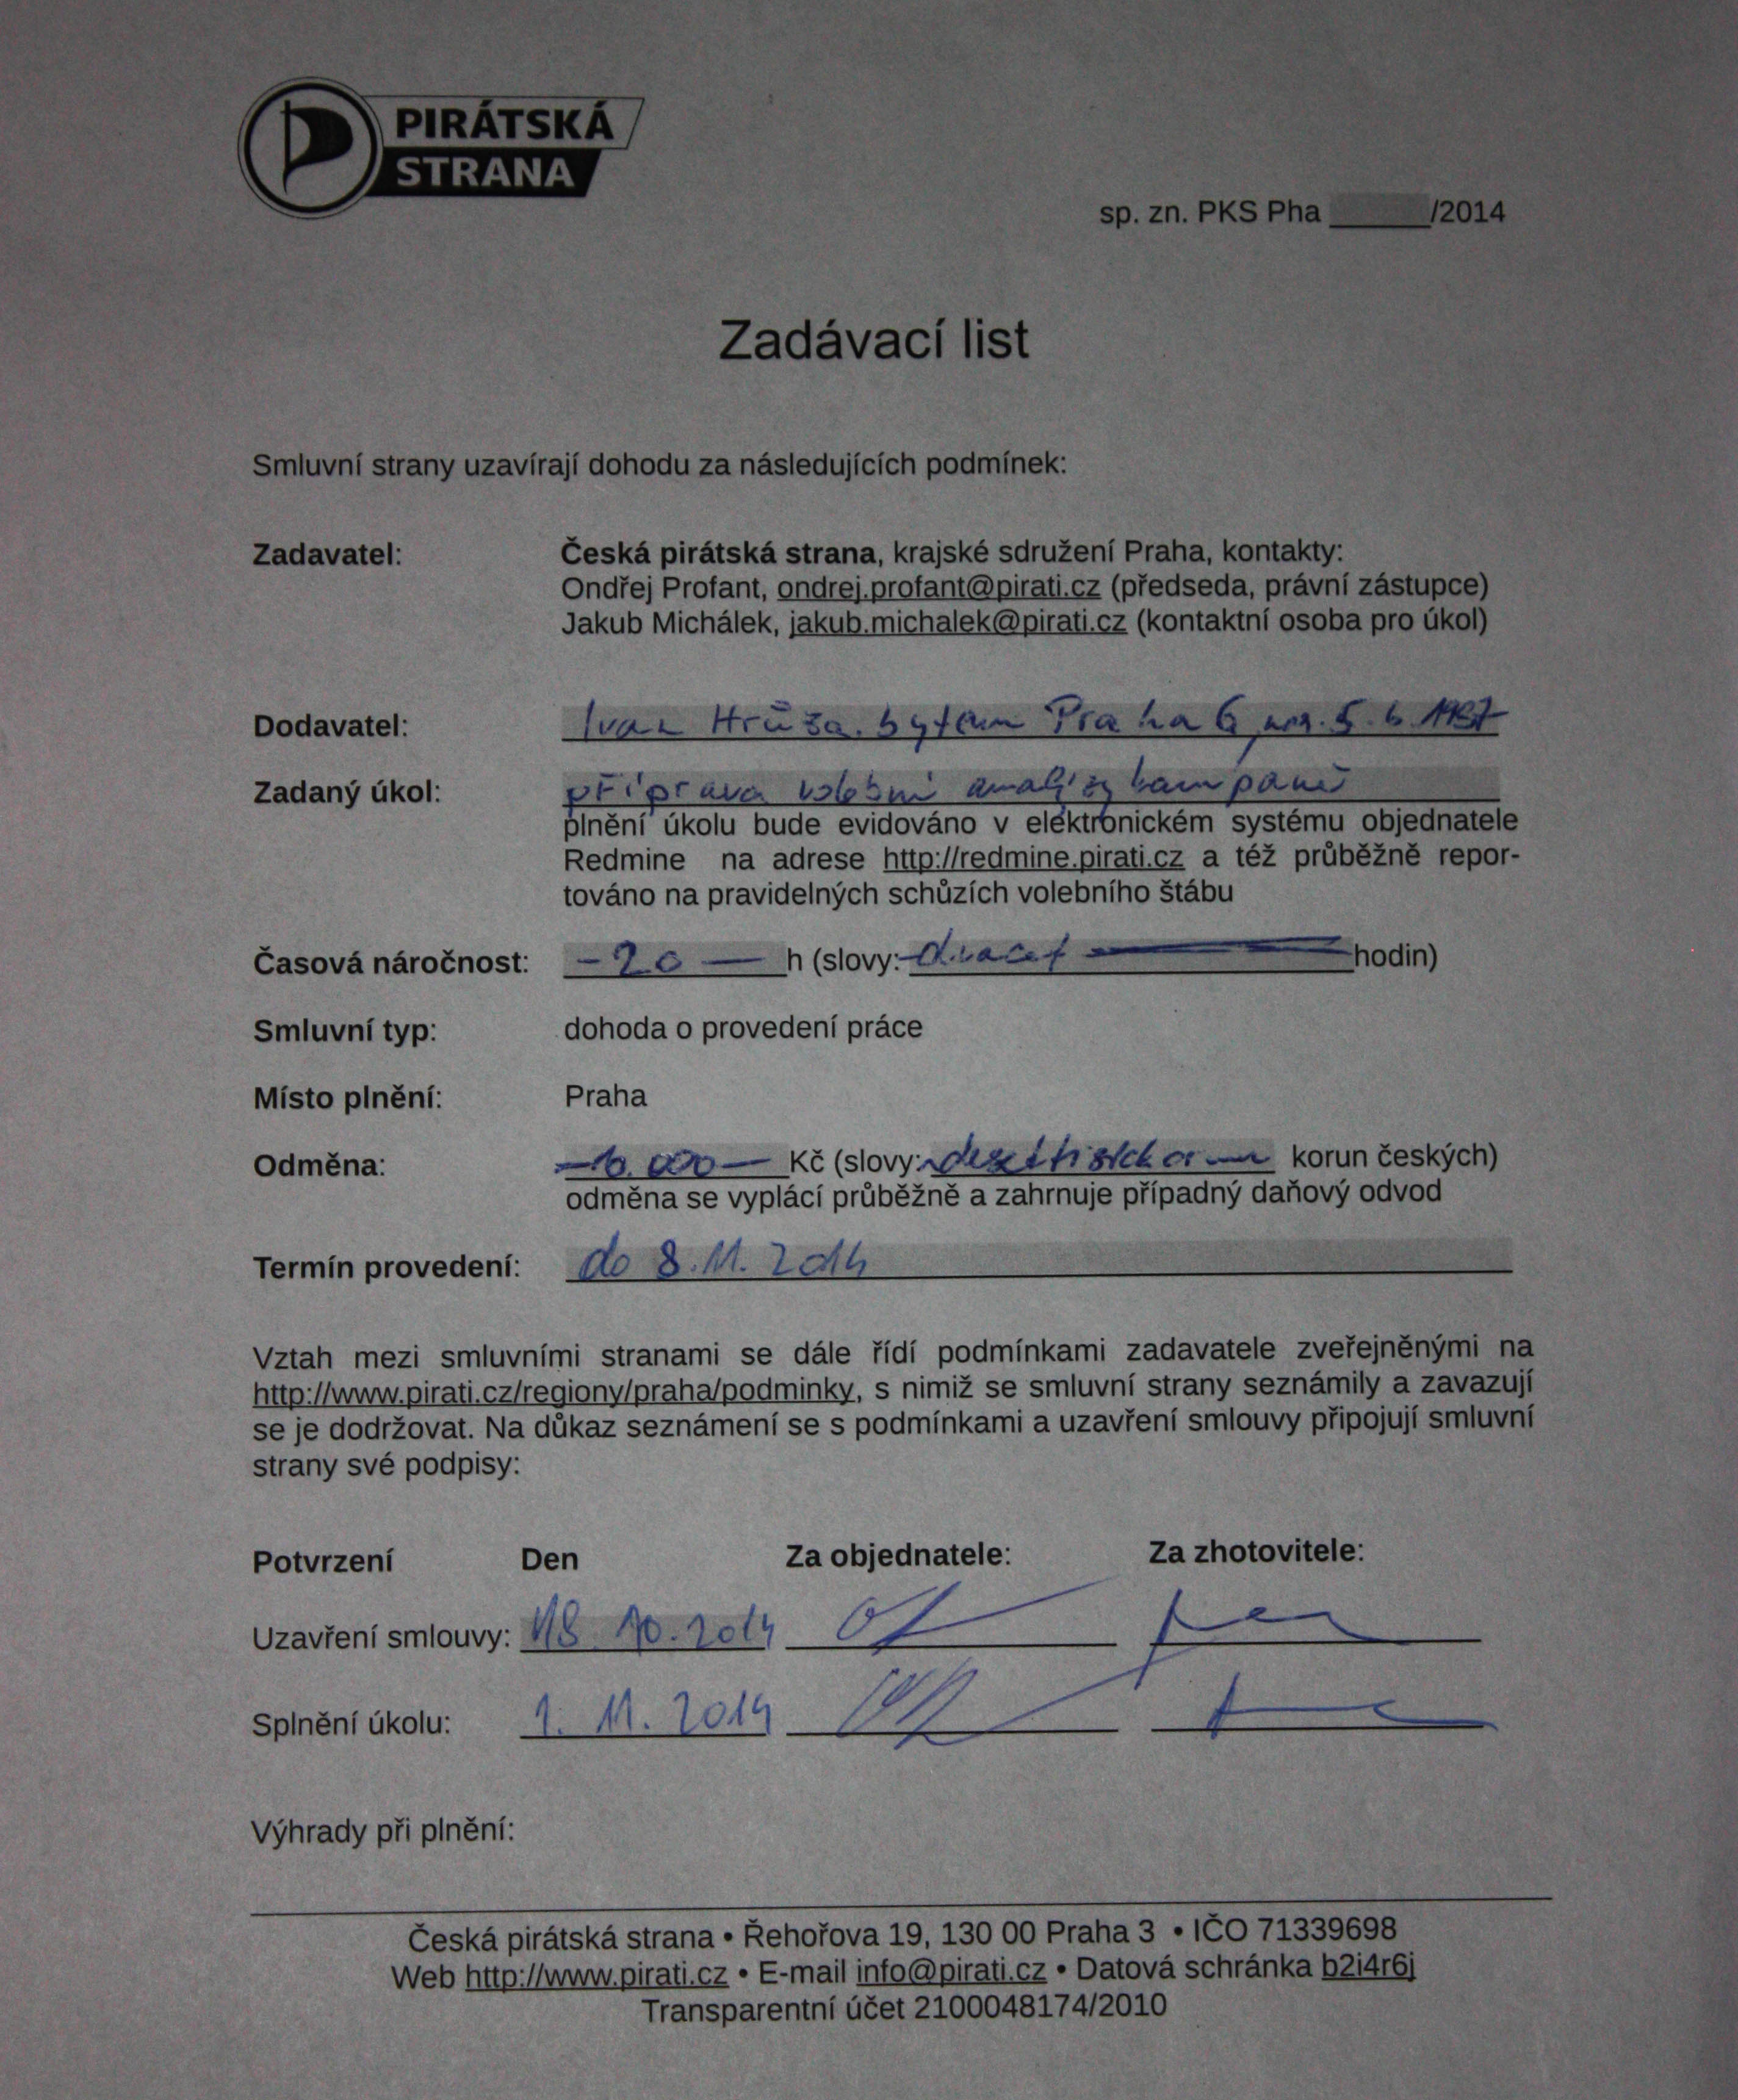 PIRÁTSKÁ
STRANA
sp. zn. PKS Pha ______/2014
Zadávací list
Smluvní strany uzavírají dohodu za následujících podmínek:
Zadavatel: Česká pirátská strana, krajské sdružení Praha, kontakty:
Ondřej Profant, ondrej.profant@pirati.cz (předseda, právní zástupce)
Jakub Michálek, jakub.michalek@pirati.cz (kontaktní osoba pro úkol)
Dodavatel: Ivan Hrůza. bytem Praha 6, nar. 5. 6. 1987
Zadaný úkol: příprava volební analýzy kampaně
plnění úkolu bude evidováno v elektronickém systému objednatele
Redmine na adrese http://redmine.pirati.cz a též průběžně repor-
továno na pravidelných schůzích volebního štábu
Časová náročnost: – 20 — h (slovy: dvacet — hodin)
Smluvní typ: dohoda o provedení práce
Místo plnění: Praha
Odměna: — 10.000 — Kč (slovy: — korun českých)
odměna se vyplácí průběžně a zahrnuje případný daňový odvod
Termín provedení: do 8.11.2014
Vztah mezi smluvními stranami se dále řídí podmínkami zadavatele zveřejněnými na
http://www.pirati.cz/regiony/praha/podminky, s nimiž se smluvní strany seznámily a zavazují
se je dodržovat. Na důkaz seznámení se s podmínkami a uzavření smlouvy připojují smluvní
strany své podpisy:
Potvrzení Den Za objednatele: Za zhotovitele:
Uzavření smlouvy: 18. 10. 2014
Splnění úkolu: 1. 11. 2014
Výhrady při plnění:
Česká pirátská strana • Řehořova 19, 130 00 Praha 3 • IČO 71339698
Web http://www.pirati.cz • E-mail info@pirati.cz • Datová schránka b2i4r6j
Transparentní účet 2100048174/2010